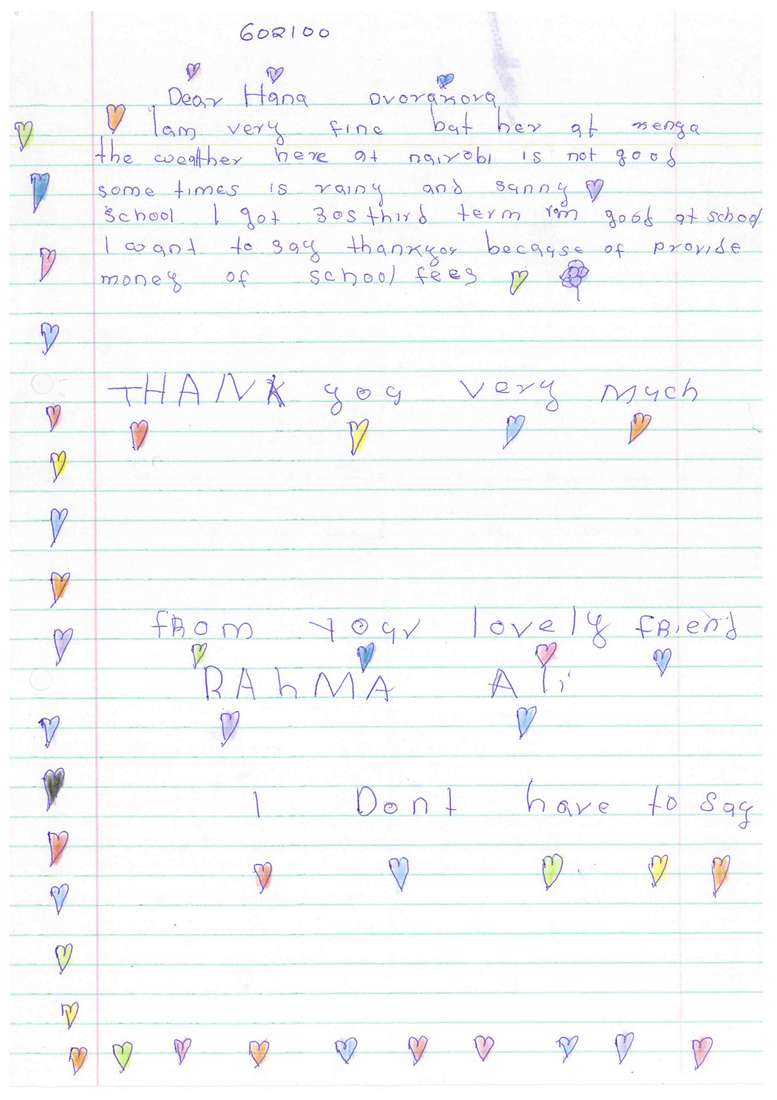 602100
Dear Hana Dvorakova
Iam very fine bat her at kenga
the weather here at nairobi is not good
some times is rainy and sanny
School I got 305 third term im good at school
I want to say thankyou because of provide
money of school fees
THANK you very much
fROm your lovely fRiend
RAhMA Ali
I Dont have to say